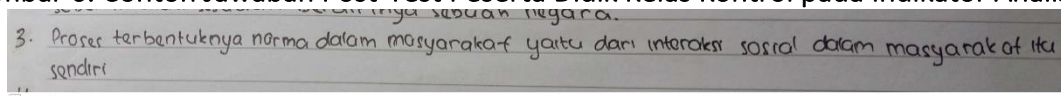 sebuah negara.
3. Proses terbentuknya norma dalam masyarakat yaitu dari interaksi sosial dalam masyarakat itu
sendiri